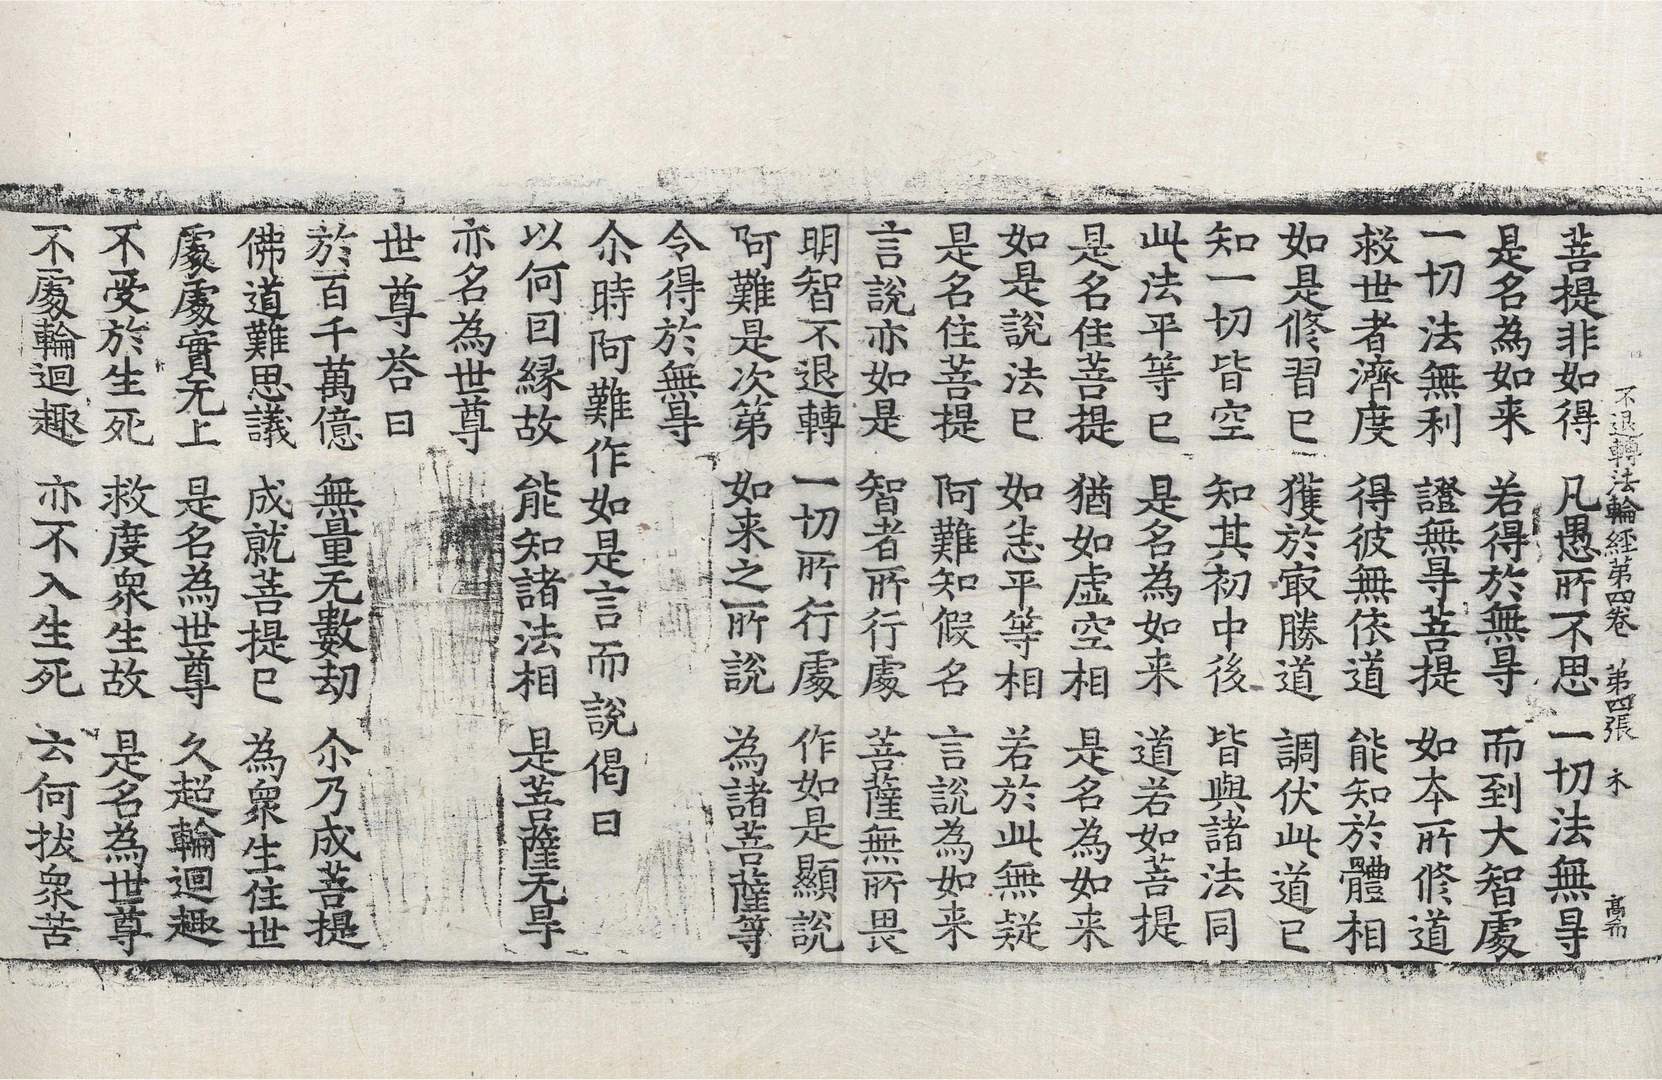 不退轉法輪經第四卷　第四張　木
菩提非如得　凡愚所不思　一切法無㝵
是名為如来　若得於無㝵　而到大智處
一切法無利　證無㝵菩提　如本所修道
救世者濟度　得彼無依道　能知於體相
如是修習已　獲於㝡勝道　調伏此道已
知一切皆空　知其初中後　皆與諸法同
此法平等已　是名為如来　道若如菩提
是名住菩提　猶如虛空相　是名為如来
如是說法已　如恙平等相　若於此無疑
是名住菩提　阿難知假名　言說為如来
言說亦如是　智者所行處　菩薩無所畏
明智不退轉　一切所行處　作如是顯說
阿難是次第　如来之所說　為諸菩薩等
令得於無㝵
尒時阿難作如是言而說偈曰
以何因緣故　能知諸法相　是菩薩无㝵
亦名為世尊
世尊荅曰
於百千萬億　無量无數劫　尒乃成菩提
佛道難思議　成就菩提已　為衆生住世
處處實无上　是名為世尊　久超輪迴趣
不受於生死　救度衆生故　是名為世尊
不處輪迴趣　亦不入生死　云何拔衆苦